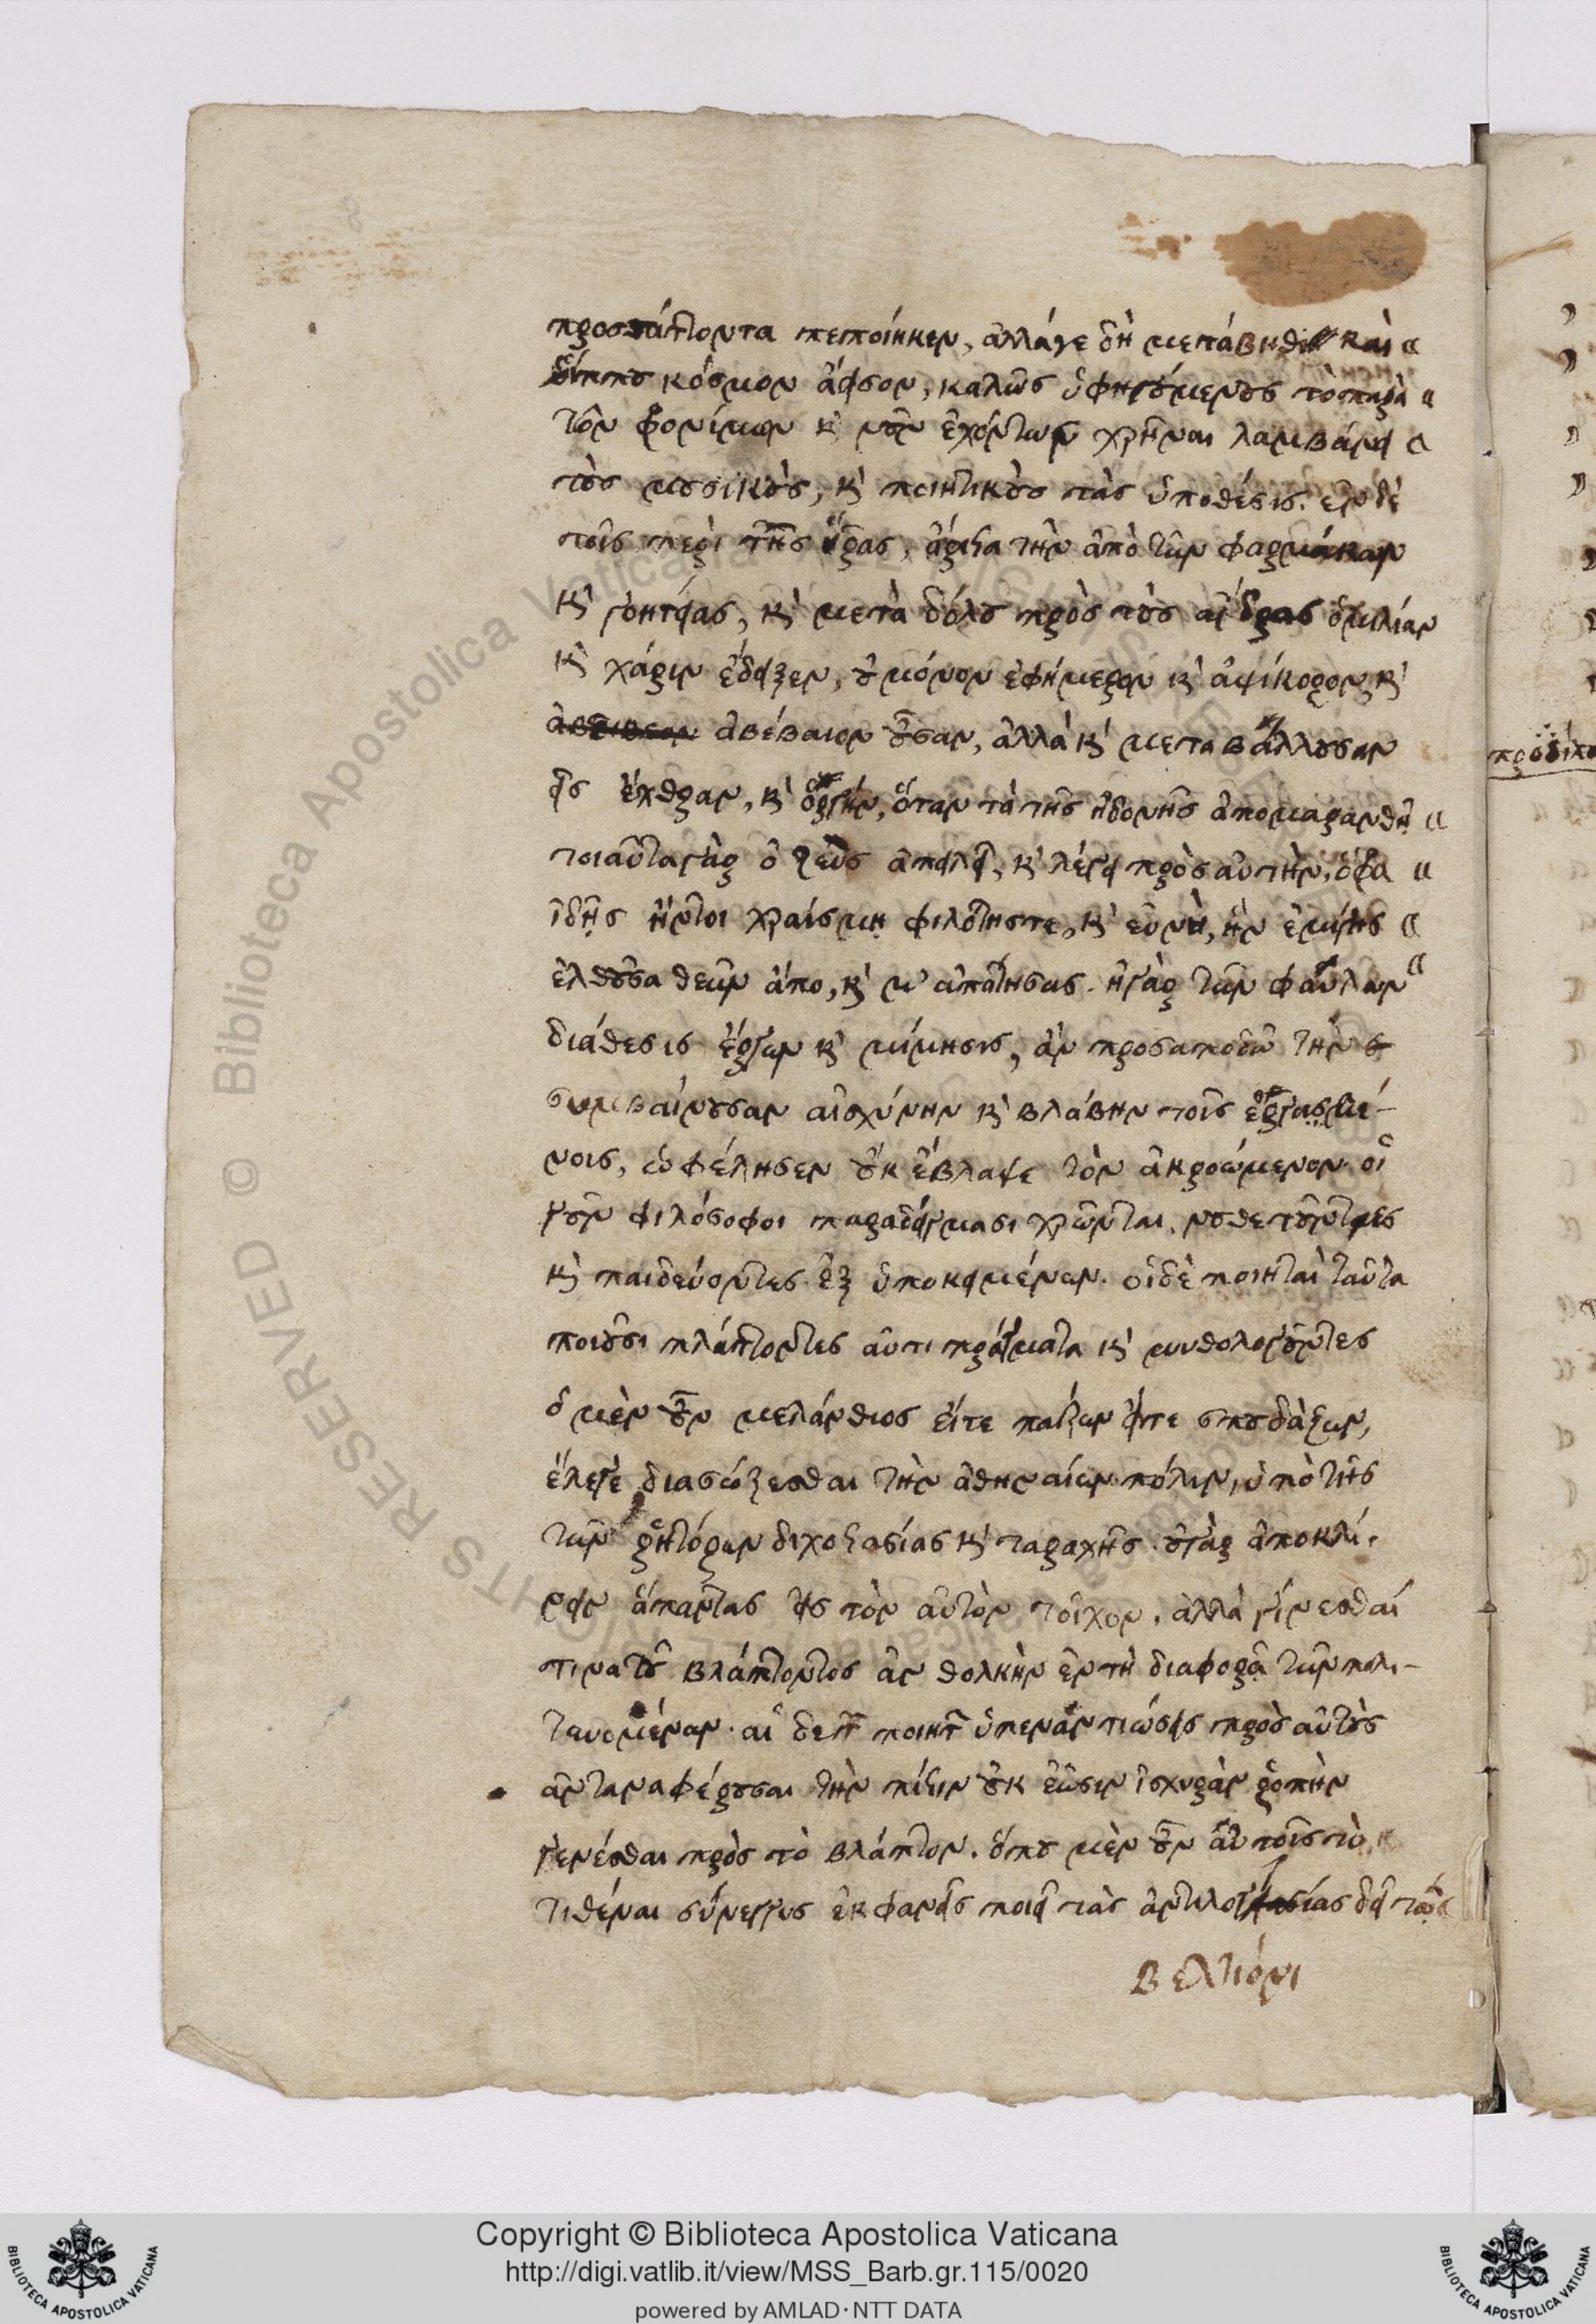 προστάττοντα πεποίηκεν, ἀλλάγε δὴ μετάβηθι καὶ
ἵππου κόσμον ἄεισον, καλῶς ὑφηγούμενος τὸ παρὰ
τῶν φρονίμων κ̀ νοῦν ἐχόντων χρῆναι λαμβάνειν
τοὺς μουσικοὺς, κ̀ ποιητικοὺς τὰς ὑποθέσις. ἐν δὲ
τοῖς περὶ τῆς ἥρας, ἄριστα τὴν ἀπὸ τῶν φαρμάκων
κ̀ γοητείας, κ̀ μετὰ δόλου πρὸς τοὺς ἄνδρας ὁμιλίαν
κ̀ χάριν ἔδειξεν, οὐ μόνον ἐφήμερον κ̀ ἁψίκορον κ̀
ἀβέβαιον οὖσαν, ἀλλὰ κ̀ μεταβάλλουσαν
εἰς ἔχθραν, κ̀ ὀργὴν, ὅταν τὰ τῆς ἡδονῆς ἀπομαρανθῇ
τοιαῦτα γὰρ ὁ ζεὺς ἀπειλεῖ, κ̀ λέγει πρὸς αὐτὴν, ὄφρα
ἰδῇς ἤντοι χραίσμῃ φιλότης τε, κ̀ εὐνὴ, ἣν ἐμίγης
ἐλθοῦσα θεῶν ἄπο, κ̀ μ' ἀπάτησας. ἡ γὰρ τῶν φαύλων
διάθεσις ἔργων κ̀ μίμησις, ἂν προσαποδῶ τὴν
συμβαίνουσαν αἰσχύνην κ̀ βλάβην τοῖς ἐργασαμέ-
νοις, ὠφέλησεν οὐκ ἔβλαψε τὸν ἀκροώμενον. οἱ
γοῦν φιλόσοφοι παραδείγμασι χρῶνται. νουθετοῦντες
κ̀ παιδεύοντες ἐξ ὑποκειμένων. οἱ δὲ ποιηταὶ ταῦτα
ποιοῦσι πλάττοντες αὐτοὶ πράγματα κ̀ μυθολογοῦντες
ὁ μὲν οὖν μελάνθιος εἴτε παίζων εἴτε σπουδάζων,
ἔλεγε διασώζεσθαι τὴν ἀθηναίων πόλιν, ὑπὸ τῆς
τῶν ῥητόρων διχοστασίας κ̀ ταραχῆς. οὐ γὰρ ἀποκλί-
νειν ἅπαντας εἰς τὸν αὐτὸν τοῖχον, ἀλλὰ γίνεσθαί
τινα τοῦ βλάπτοντος ἀνθολκὴν ἐν τῇ διαφορᾷ τῶν πολι-
τευομένων. αἱ δὲ τῶν ποιητῶν ὑπεναντιώσεις πρὸς αὑτοὺς
ἀνταναφέρουσαι τὴν πίστιν οὐκ ἐῶσιν ἰσχυρὰν ῥοπὴν
γενέσθαι πρὸς τὸ βλάπτον. ὅπου μὲν οὖν αὐτοῖς τὸ
τιθέναι σύνεγγυς ἐκφανεῖς ποιεῖ τὰς ἀντιλογίας δεῖ τῷ
βελτίονι
Copyright © Biblioteca Apostolica Vaticana
http://digi.vatlib.it/view/MSS_Barb.gr.115/0020
powered by AMLAD·NTT DATA